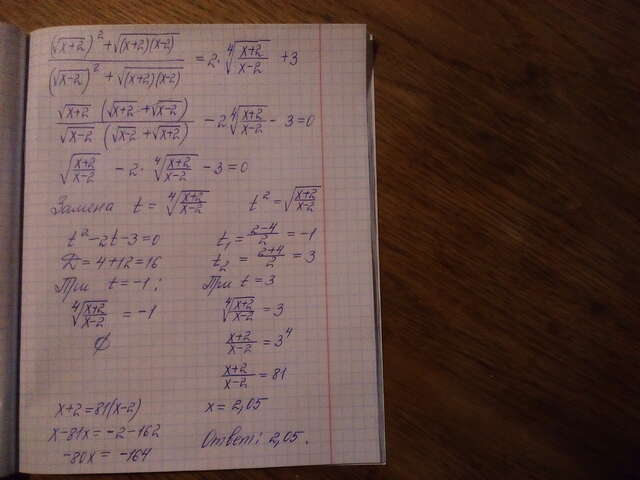 ((√(x+2))² + √((x+2)(x-2))) / ((√(x-2))² + √((x+2)(x-2))) = 2·⁴√((x+2)/(x-2)) + 3
(√(x+2) (√(x+2) + √(x-2))) / (√(x-2) (√(x-2) + √(x+2))) - 2⁴√((x+2)/(x-2)) - 3 = 0
√((x+2)/(x-2)) - 2·⁴√((x+2)/(x-2)) - 3 = 0
Замена t = ⁴√((x+2)/(x-2)) t² = √((x+2)/(x-2))
t² - 2t - 3 = 0 t₁ = (2-4)/2 = -1
Д = 4 + 12 = 16 t₂ = (2+4)/2 = 3
При t = -1: При t = 3
⁴√((x+2)/(x-2)) = -1 ⁴√((x+2)/(x-2)) = 3
∅ (x+2)/(x-2) = 3⁴
(x+2)/(x-2) = 81
x+2 = 81(x-2) x = 2,05
x - 81x = -2 - 162 Ответ: 2,05.
-80x = -164